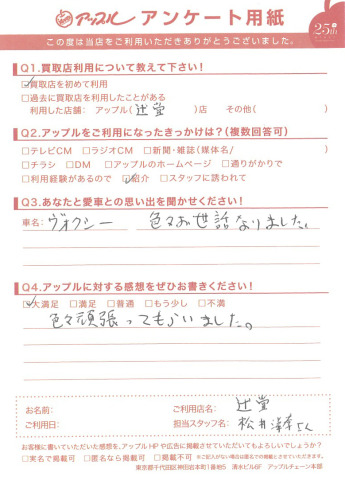 アップル アンケート用紙
25th
この度は当店をご利用いただきありがとうございました。
Q1.買取店利用について教えて下さい！
☑買取店を初めて利用
□過去に買取店を利用したことがある
利用した店舗： アップル( 辻堂 )店 その他( )
Q2.アップルをご利用になったきっかけは？(複数回答可)
□テレビCM □ラジオCM □新聞・雑誌(媒体名/ )
□チラシ □DM □アップルのホームページ □通りがかりで
□利用経験があるので ☑紹介 □スタッフに誘われて
Q3.あなたと愛車との思い出を聞かせください！
車名： ヴォクシー 色々お世話なりました。
Q4.アップルに対する感想をぜひお書きください！
☑大満足 □満足 □普通 □もう少し □不満
色々頑張ってもらいました。
お名前： ご利用店名： 辻堂
ご利用日： 担当スタッフ名： 松井 さん
お客様に書いていただいた感想を、アップルHPや広告に掲載させていただいてもよろしいでしょうか？
□実名で掲載可 □匿名なら掲載可 □掲載不可 ※ご記入がない場合は匿名での掲載とさせていただきます。
東京都千代田区神田岩本町1番地5 清水ビル6F アップルチェーン本部